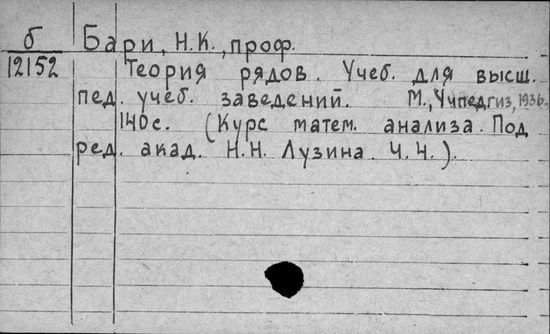 б
12152
Бари, Н.К., проф.
Теория рядов. Учеб. для высш.
пед. учеб. заведений. М., Учпедгиз, 1936.
140с. (Курс матем. анализа. Под
ред. акад. Н.Н. Лузина. Ч.4.).